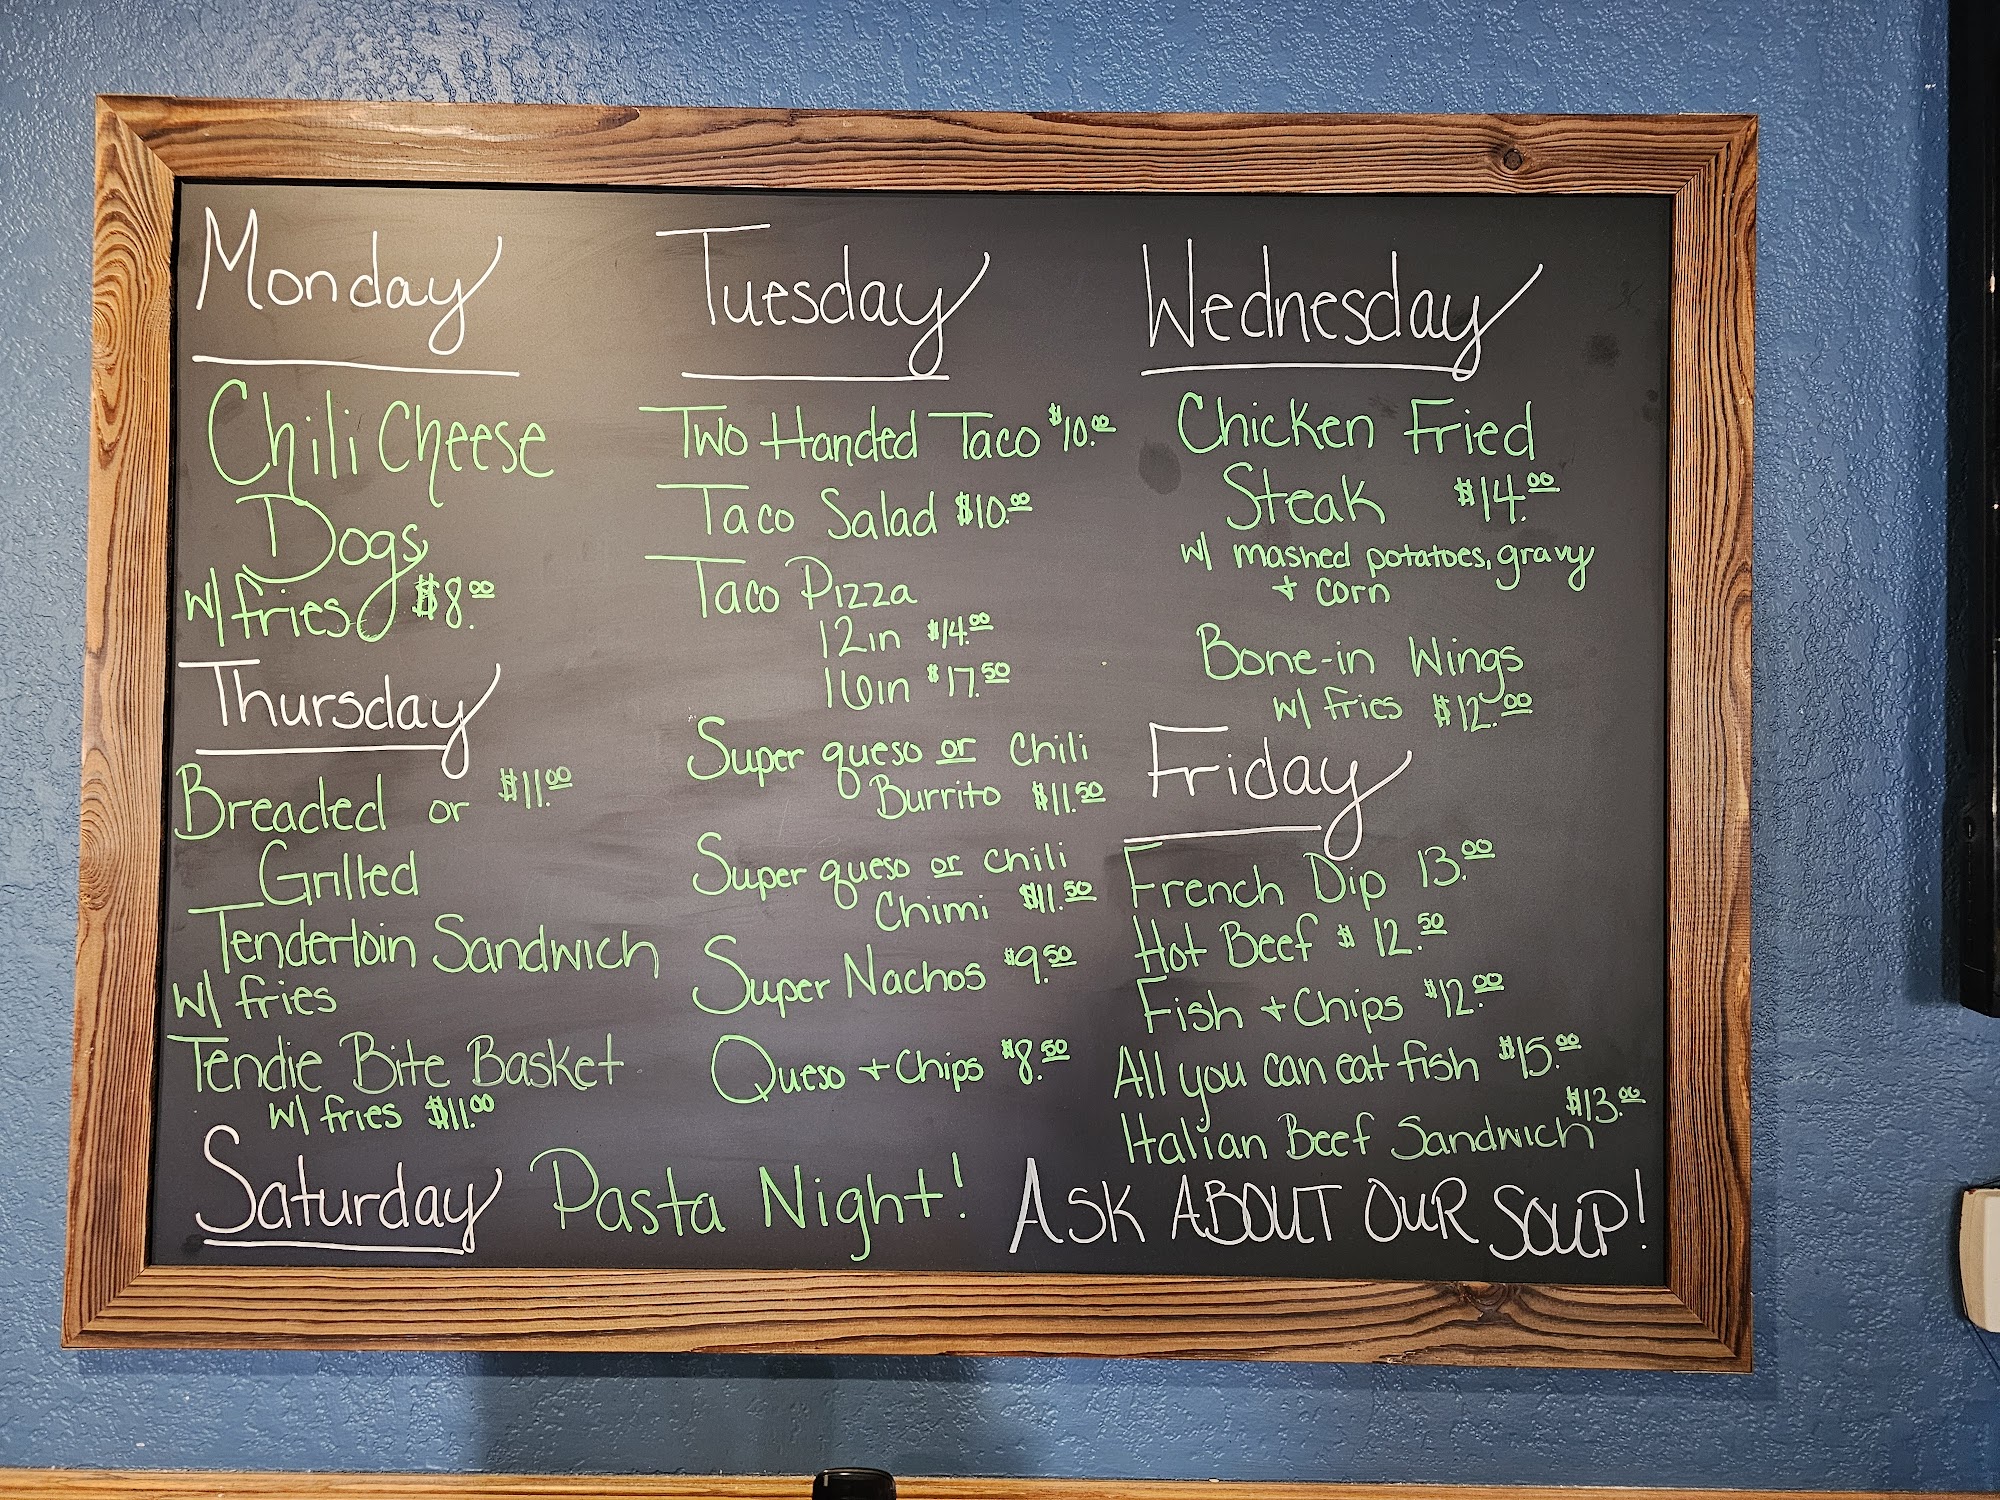 Monday
Chili Cheese
Dogs
w/ fries $8.00
Tuesday
Two Handed Taco $10.00
Taco Salad $10.00
Taco Pizza
12in $14.00
16in $17.50
Super queso or Chili
Burrito $11.50
Super queso or Chili
Chimi $11.50
Super Nachos $9.50
Queso + Chips $8.50
Wednesday
Chicken Fried
Steak $14.00
w/ mashed potatoes, gravy
+ corn
Bone-in Wings
w/ fries $12.00
Thursday
Breaded or $11.00
Grilled
Tenderloin Sandwich
w/ fries
Tendie Bite Basket
w/ fries $11.00
Friday
French Dip 13.00
Hot Beef $12.50
Fish + Chips $12.00
All you can eat fish $15.00
Italian Beef Sandwich $13.00
Saturday Pasta Night!
ASK ABOUT OUR SOUP!